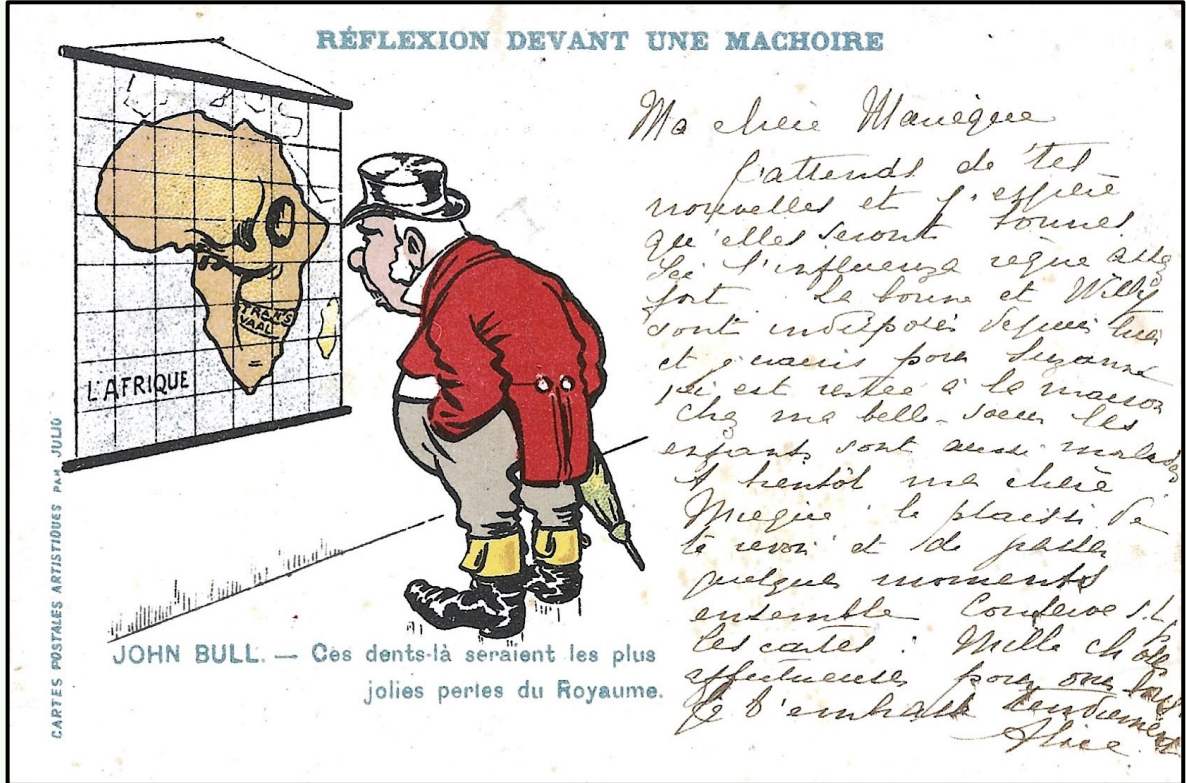 RÉFLEXION DEVANT UNE MACHOIRE
TRANS
VAAL
L'AFRIQUE
CARTES POSTALES ARTISTIQUES PAR JULIO
JOHN BULL. — Ces dents-là seraient les plus
jolies perles du Royaume.
Ma chère
J'attends de tes
nouvelles et j'espère
qu'elles seront bonnes.
Ici l'influenza règne assez
fort. La bonne et Willy
sont indisposés depuis hier
et pour Suzanne
qui est restée à la maison
chez ma belle-soeur les
enfants sont aussi malades
A bientôt ma chère
le plaisir de
te revoir et de passer
quelques moments
ensemble
les cartes. Mille choses
affectueuses pour
Je t'embrasse tendrement
Alice